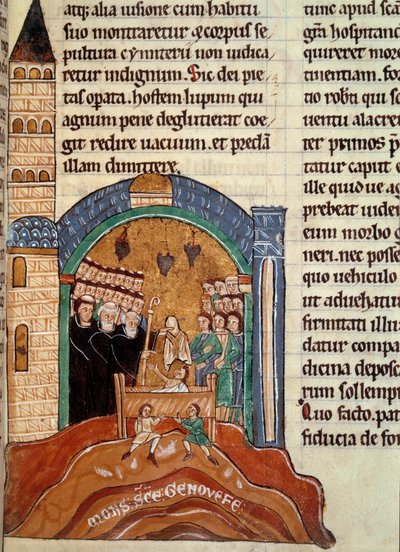 atq; alia uisione cum habitu
suo montraretur q̄ corpus se
pultura cymiterii non iudica
retur indignum. Sic dei pie
tas opata. hostem lupum qui
agnum pene deglutierat coe
git redire uacuum. et preclā
illam dimittere.
MONS SCE GENOVEFE
tunc apud
gr̄a hospitand
quireret more
tinentiam. for
tio rob̄ti qui
uentu alacre
ter primos
tatur caput e
ille
prebeat uiden
cum morbo g
neri. nec posse
quo uehiculo
ut aduehatur
firmitati illu
datur compa
dicina deposc
rum sollemp
Quo facto. pat
fiducia de for